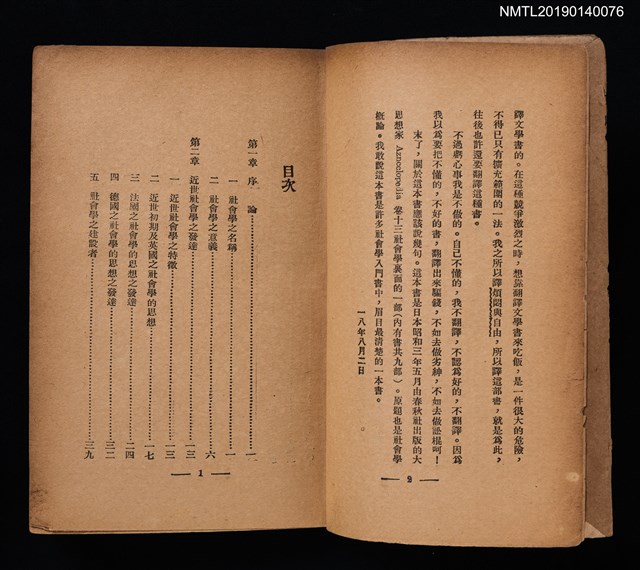 NMTL20190140076
譯文學書的。在這種競爭激烈之時，想靠翻譯文學書來吃飯，是一件很大的危險，
不得已只有擴充範圍的一法。我之所以譯煩悶與自由，所以譯這部書，就是爲此，
往後也許還要翻譯這種書。
不過虧心事我是不做的。自己不懂的，我不翻譯，不認爲好的，不翻譯。因爲
我以爲要把不懂的，不好的書，翻譯出來騙錢，不如去做劣紳，不如去做訟棍呵！
末了，關於這本書應該說幾句。這本書是日本昭和三年五月由春秋社出版的大
思想家 卷十三社會學裏面的一部（內有書共九部）。原題也是社會學
概論。我敢說這本書是許多社會學入門書中，眉目最清楚的一本書。
一八年八月二日
— 2 —
目次
第一章 序 論……一
一 社會學之名稱……一
二 社會學之意義……六
第二章 近世社會學之發達……一三
一 近世社會學之特徵……一三
二 近世初期及英國之社會學的思想……一七
三 法國之社會學的思想之發達……二四
四 德國之社會學的思想之發達……三二
五 社會學之建設者……三九
— 1 —